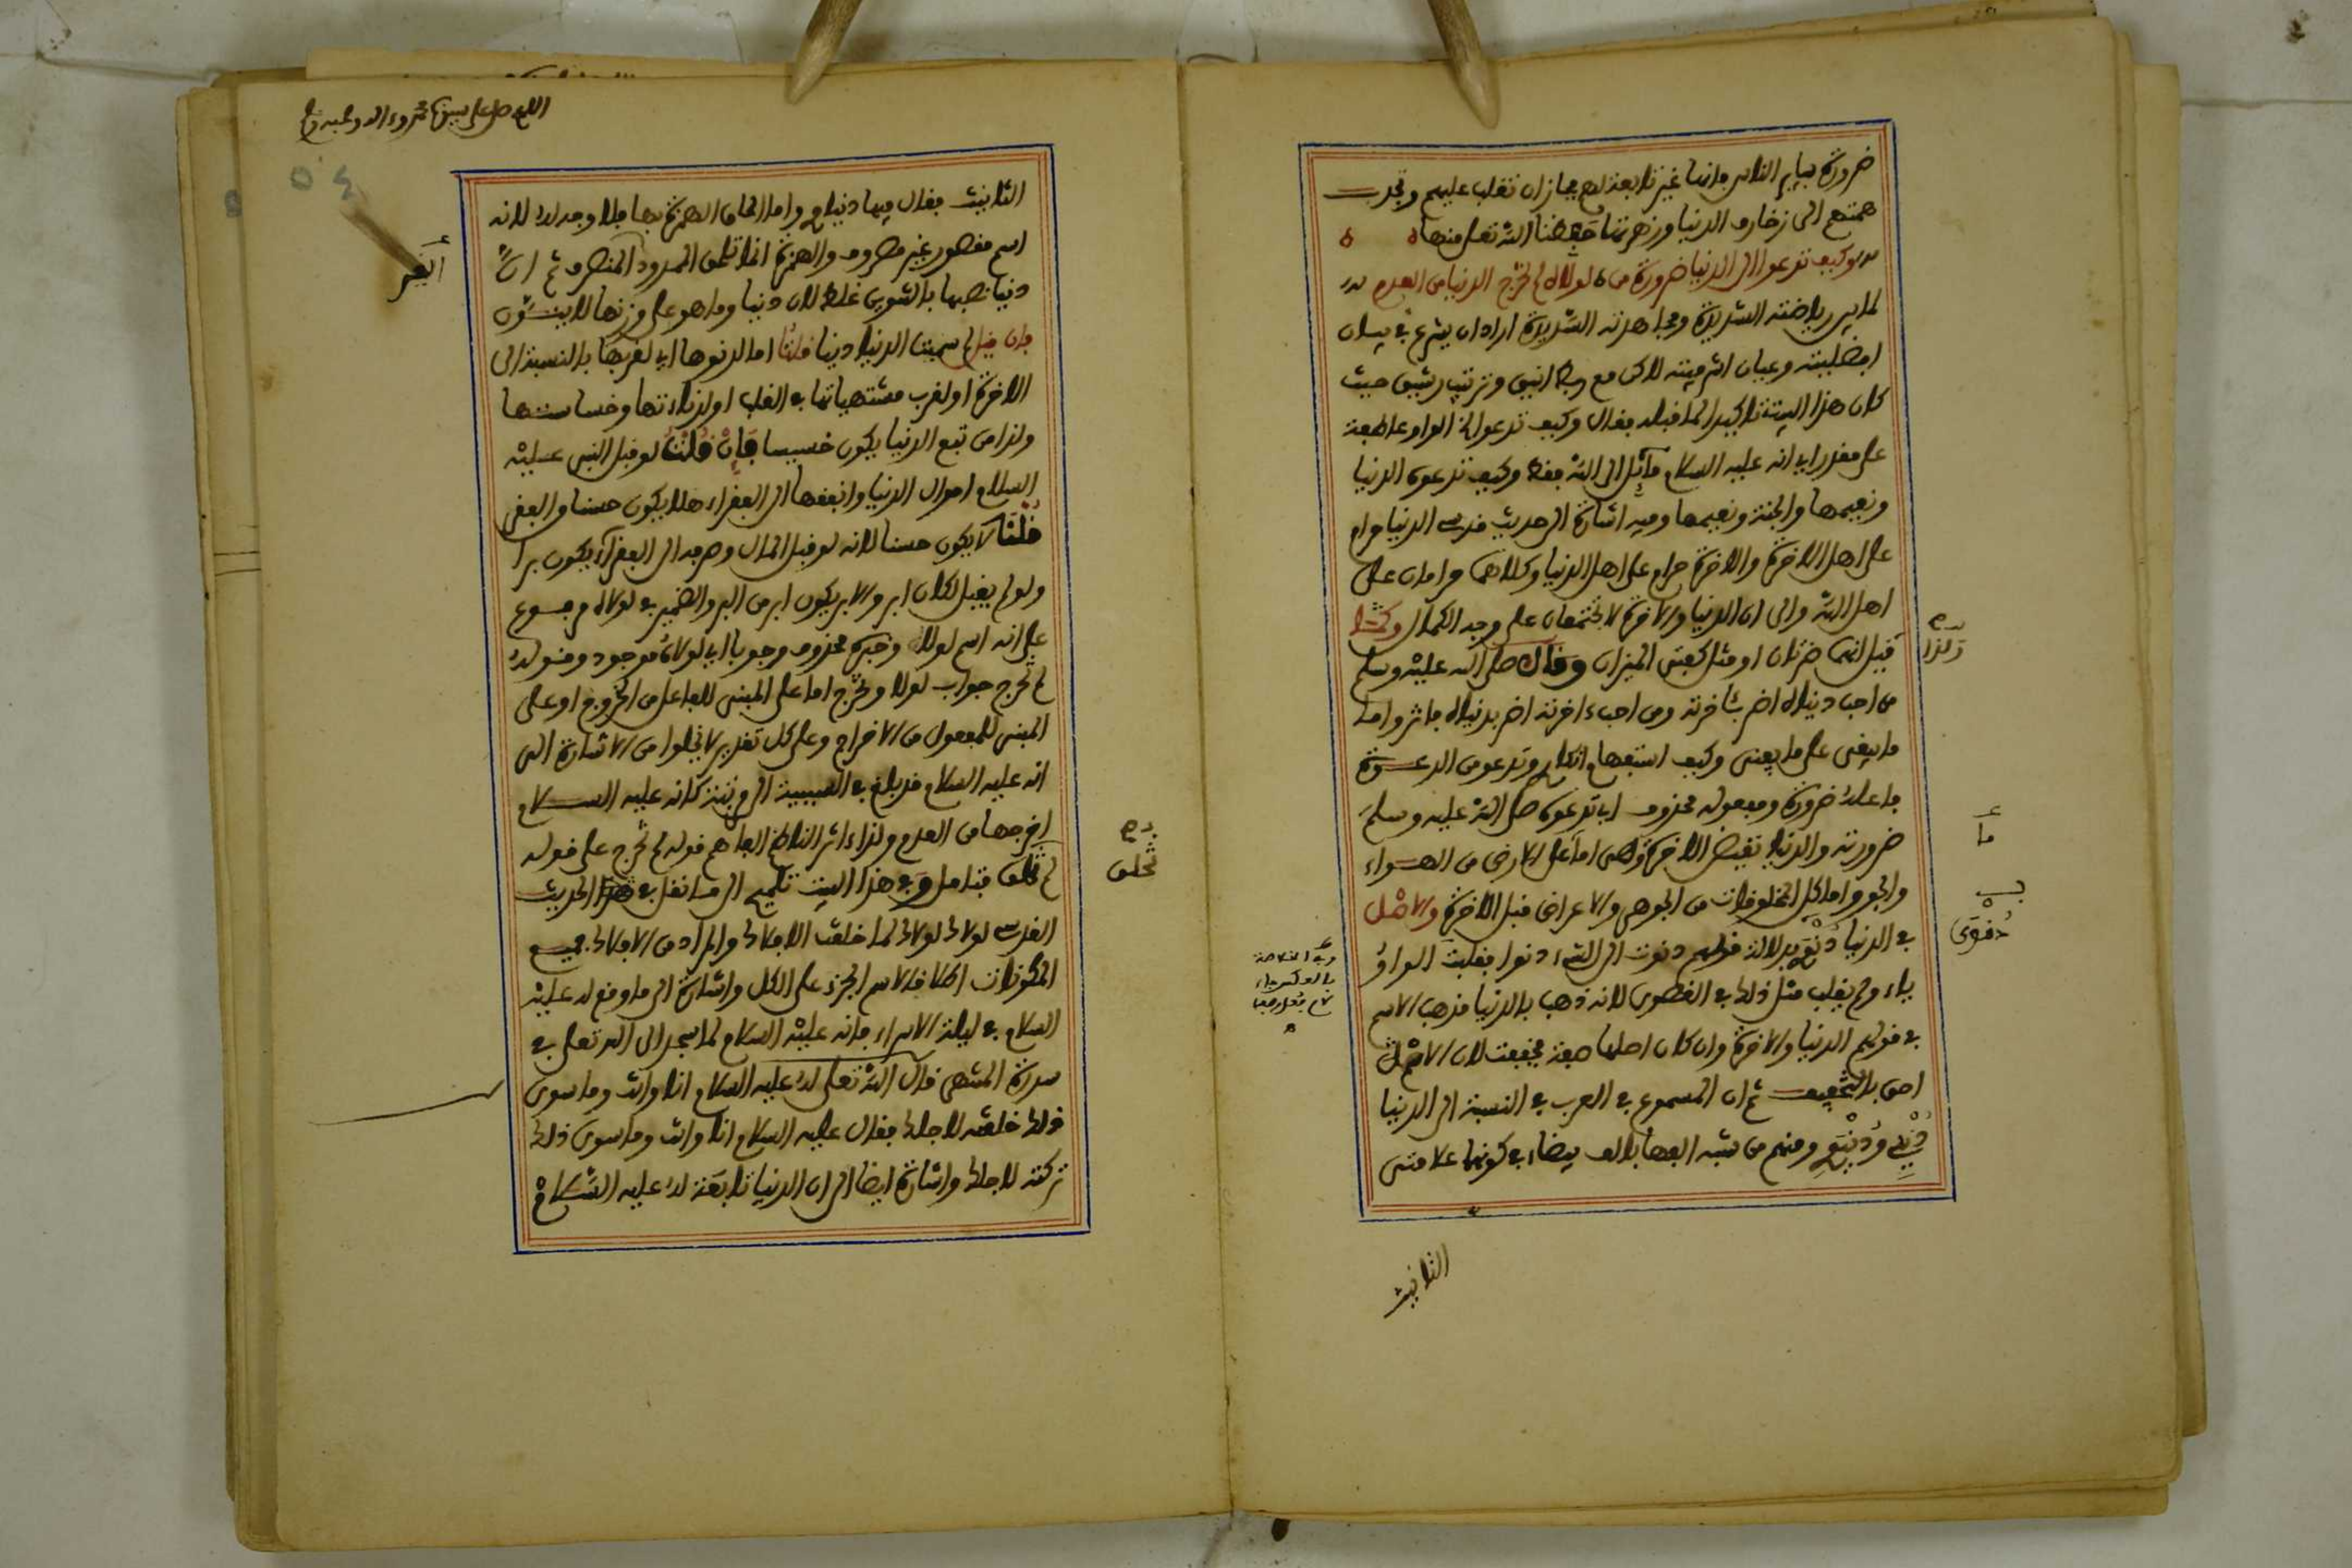 ضرورة بباير الناس فانها غير تابعة لهم فجاز ان تغلب عليهم وتجذب
همتهم الى زخارف الدنيا وزهرتها حفظنا الله تعلى منها ه ه
وكيف تدعوا الى الدنيا ضرورة من ه لولاه لم تخرج الدنيا من العدم
لما بين رياضته الشديدة ومجاهدته الشديدة اراد ان يشرع في بيان
افضليته وعيان اشرفيته لاكن مع ربط انيق وترتيب رشيق حيث
كان هذا البيت تاكيدا لما قبله فقال وكيف تدعوا الخ الواو عاطفة
على مقدر اي انه عليه السلام مائل الى الله فقط وكيف تدعوا الدنيا
ونعيمها والجنة ونعيمها وفيه اشارة الى حديث قدسي الدنيا حرام
على اهل الاخرة والاخرة حرام على اهل الدنيا وكلاهما حرامان على
اهل الله والى ان الدنيا والاخرة لا يجتمعان على وجه الكمال وكذا
ولذا
قيل انهما ضرتان او مثل كفتي الميزان وقال صلى الله عليه وسلم
من احب دنياه اضر باخرته ومن احب ءاخرته اضر بدنياه فاثروا ما
ما يبقى على ما يفنى وكيف استفهام انكار وتدعو من الدعوة
فاعله ضرورة ومفعوله محذوف اي تدعوه صلى الله عليه وسلم
ضرورته والدنيا نقيض الاخرة وهى اما على الارض من الهواء
ما
والجو واما كل المخلوقات من الجوهر والاعراض قبل الاخرة والاصل
في الدنيا دنوى بدلالة قولهم دنوت الى الشيء دنوا فقلبت الواو
ياء ولم يقلب مثل ذلك في القصوى لانه ذهب بالدنيا مذهب الاسم
في قولهم الدنيا والاخرة وان كان اصلها صفة فخففت لان الاسم
احق بالتخفيف ثم ان المسموع في العرب في النسبة الى الدنيا
دنيي ودنيوي ومنهم من شبه الفها بالف بيضاء في كونها علامتي
التانيث
اللهم صل على سيدنا محمد وءاله وصحبه
٥٤
التانيث فقال فيها دنياوي واما الحاق الهمزة بها فلا وجه له لانه
اسم مقصور غير مصروف والهمزة انما تلحق الممدود المنصرف ثم ان
دنيا نصبها بالتنوين غلط لان دنيا وما هو على وزنها لا ينون
فان قيل لم سميت الدنيا دنيا قلنا اما لدنوها اي لقربها بالنسبة الى
الاخرة او لقرب مشتهياتها في القلب او لدناءتها وخساستها
ولذا من تبع الدنيا يكون خسيسا فإن قلت لو قبل النبي عليه
السلام اموال الدنيا وانفقها الى الفقراء هلا يكون حسنا والفقر
قلنا لا يكون حسنا لانه لو قبل المال وصرفه الى الفقراء يكون برا
ولو لم يقبل لكان ابر والابر يكون ابر من البر والضمير في لولاه مرفوع
على انه اسم لولا وخبره محذوف وجوبا اي لولاه موجود وقوله
لم تخرج جواب لولا وتخرج اما على المبني للفاعل من الخروج او على
المبني للمفعول من الاخراج وعلى كل تقدير لا يخلوا من الاشارة الى
انه عليه السلام قد بلغ في السببية الى رتبة كانه عليه السلام
اخرجها من العدم ولذا ءاثر الناظم الفاهم قوله لم تخرج على قوله
لم تخلق فتامل وفي هذا البيت تلميح الى ما نقل في هذا الحديث
تخلق
القدسي لولاك لولاك لما خلقت الافلاك والمراد من الافلاك جميع
المكونات اطلاقا لاسم الجزء على الكل واشارة الى ما وقع له عليه
السلام في ليلة الاسراء فانه عليه السلام لما سجد الى الله تعلى في
سدرة المنتهى قال الله تعلى له عليه السلام انا وانت وما سوى
ذلك خلقته لاجلك فقال عليه السلام انا وانت وما سوى ذلك
تركته لاجلك واشارة ايضا الى ان الدنيا تابعة له عليه السلام